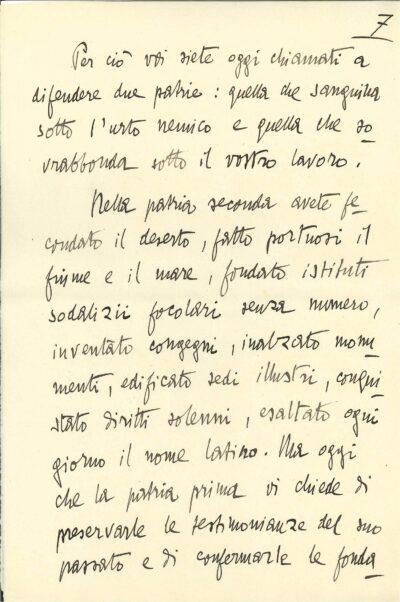 7
Per ciò voi siete oggi chiamati a
difendere due patrie : quella che sanguina
sotto l'urto nemico e quella che so
vrabbonda sotto il vostro lavoro.
Nella patria seconda avete fe
condato il deserto, fatto portuosi il
fiume e il mare, fondato istituti
sodalizii focolari senza numero,
inventato congegni, inalzato monu
menti, edificato sedi illustri, conqui
stato diritti solenni, esaltato ogni
giorno il nome latino. Ma oggi
che la patria prima vi chiede di
preservarle le testimonianze del suo
passato e di confermarle le fonda